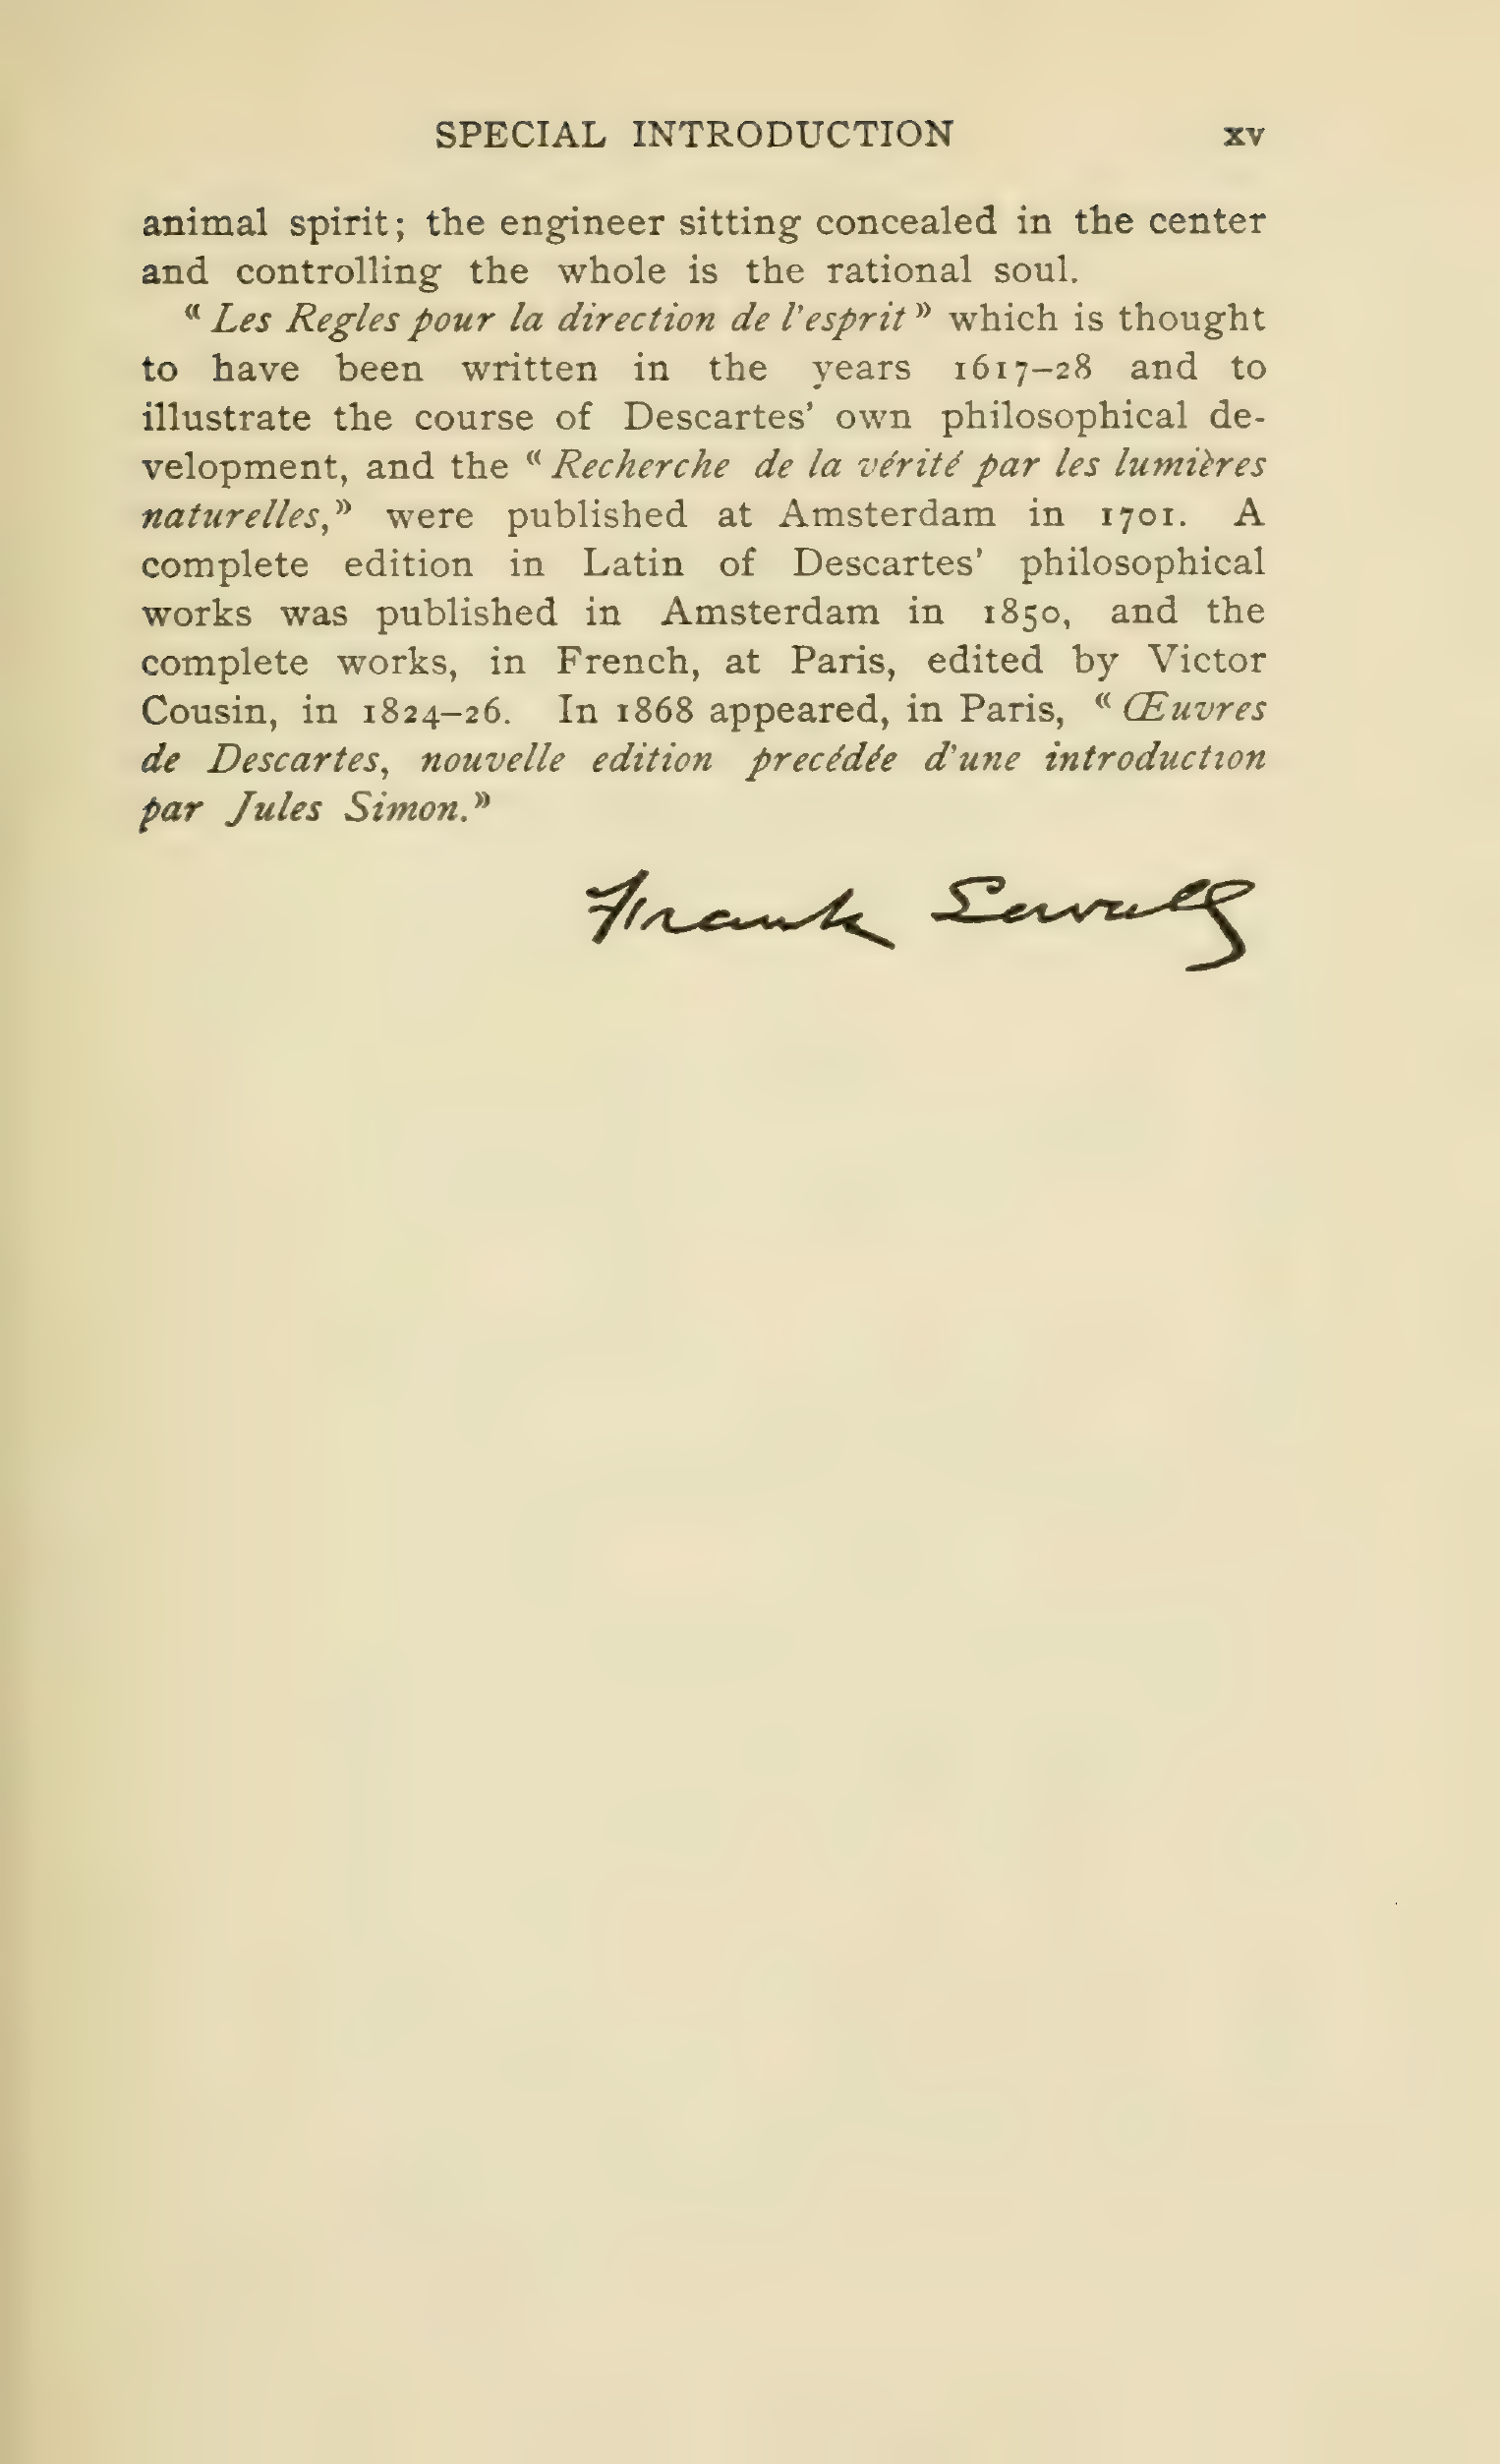 SPECIAL INTRODUCTION xv
animal spirit; the engineer sitting concealed in the center
and controlling the whole is the rational soul.
“Les Regles pour la direction de l'esprit” which is thought
to have been written in the years 1617–28 and to
illustrate the course of Descartes’ own philosophical de-
velopment, and the “Recherche de la vérité par les lumières
naturelles,” were published at Amsterdam in 1701. A
complete edition in Latin of Descartes’ philosophical
works was published in Amsterdam in 1850, and the
complete works, in French, at Paris, edited by Victor
Cousin, in 1824–26. In 1868 appeared, in Paris, “Œuvres
de Descartes, nouvelle edition precédée d'une introduction
par Jules Simon.”
Frank Sewall